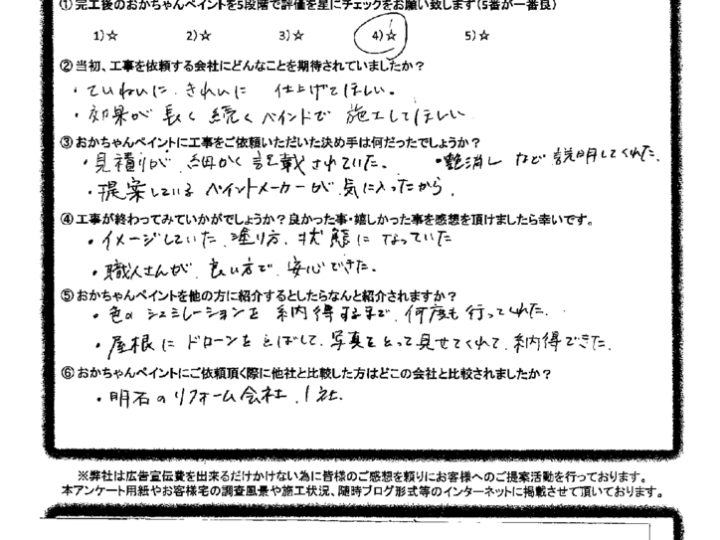 ① 完工後のおかちゃんペイントを5段階で評価を星にチェックをお願い致します（5番が一番良）
1）☆ 2）☆ 3）☆ 4）☆ 5）☆
② 当初、工事を依頼する会社にどんなことを期待されていましたか？
・ていねいに きれいに 仕上げてほしい。
・効果が長く続くペイントで施工してほしい
③ おかちゃんペイントに工事をご依頼いただいた決め手は何だったでしょうか？
・見積りが 細かく 記載されていた。 ・艶消し など 説明してくれた。
・提案している ペイントメーカーが 気に入ったから。
④ 工事が終わってみていかがでしょうか？良かった事・嬉しかった事を感想を頂けましたら幸いです。
・イメージしていた 塗り方、状態に なっていた
・職人さんが 良い方で、安心できた。
⑤ おかちゃんペイントを他の方に紹介するとしたらなんと紹介されますか？
・色のシュミレーションを 納得するまで、何度も行ってくれた。
・屋根に ドローンを とばして、写真をとって見せてくれて、納得できた。
⑥ おかちゃんペイントにご依頼頂く際に他社と比較した方はどこの会社と比較されましたか？
・明石のリフォーム会社、1社。
※弊社は広告宣伝費を出来るだけかけない為に皆様のご感想を頼りにお客様へのご提案活動を行っております。
本アンケート用紙やお客様宅の調査風景や施工状況、随時ブログ形式等のインターネットに掲載させて頂いております。